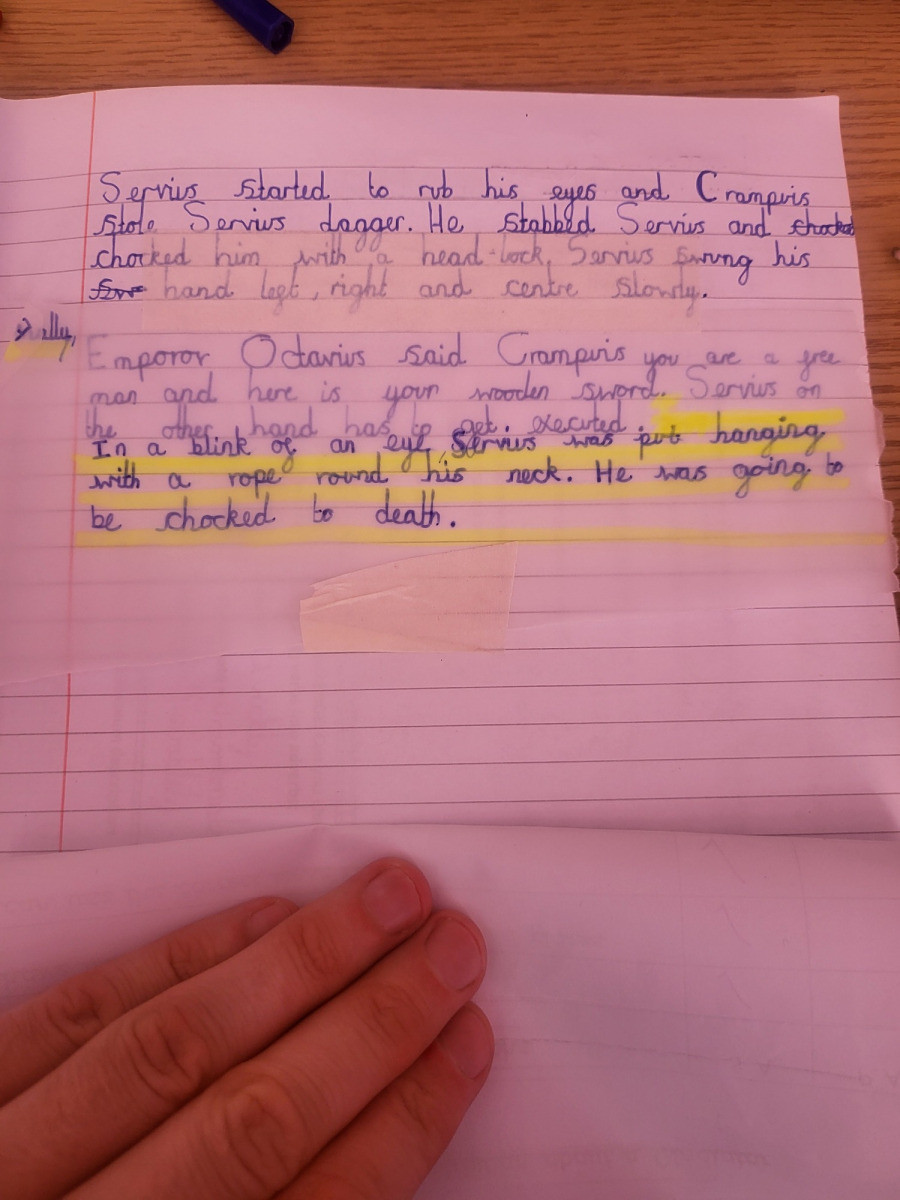 Servius started to rub his eyes and Crampuis
stole Servius dagger. He stabbed Servius and chocked
chocked him with a head-lock, Servius swung his
hand left, right and centre slowly.
Emporor Octavius said Crampuis you are a free
man and here is your wooden sword. Servius on
the other hand has to get executed.
In a blink of an eye, Servius was put hanging
with a rope round his neck. He was going to
be chocked to death.